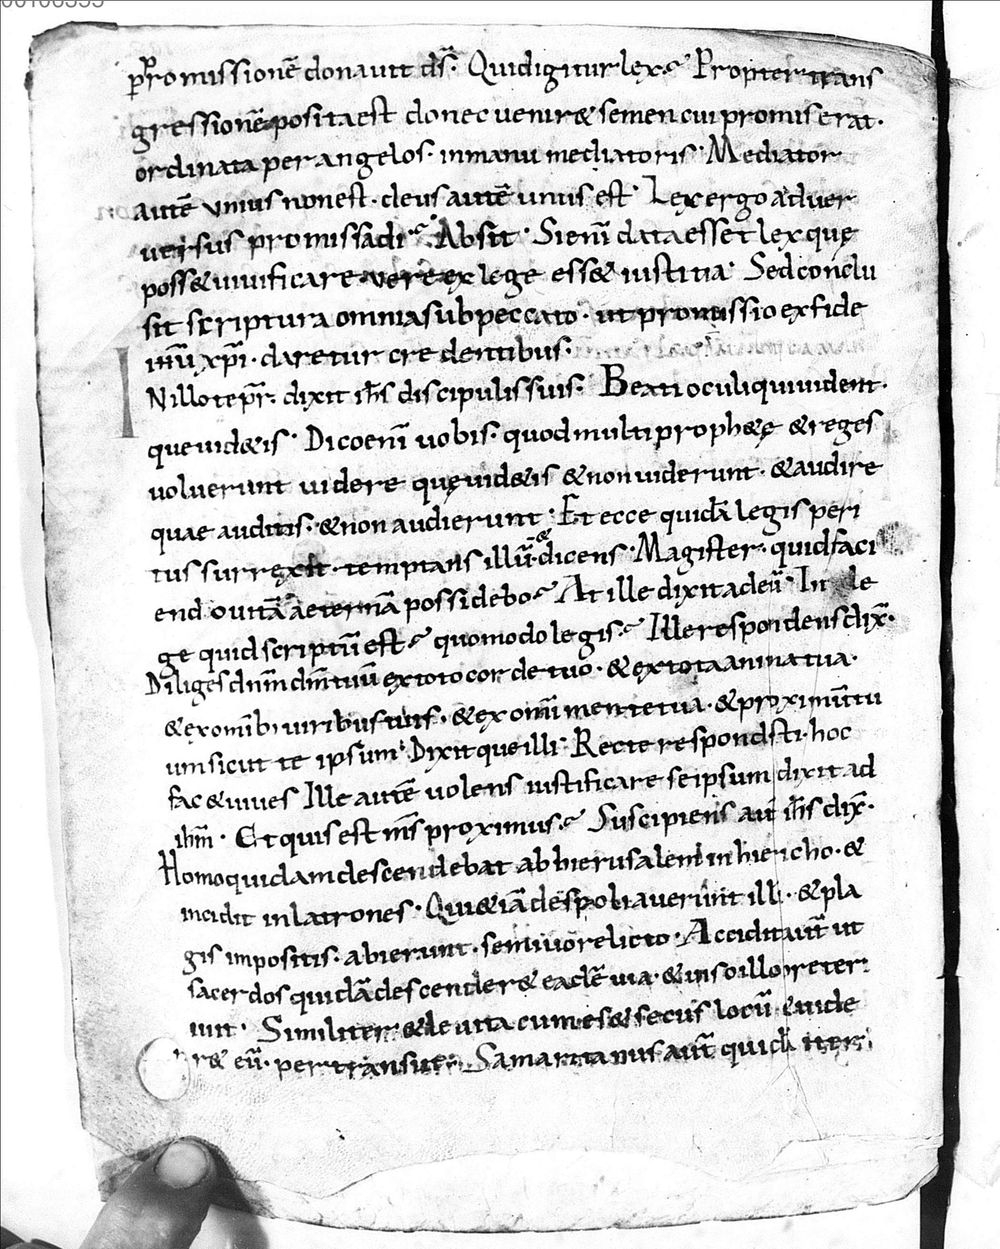 p̄romissionē donauit d̄s. Quid igitur lex? Propter trans
gressionē posita est donec ueniret semen cui promiserat.
ordinata per angelos. in manu mediatoris. Mediator
autē unius non est. deus autē unus est. Lex ergo aduer
uersus promissa di? Absit. Si enī data esset lex quę
posset uiuificare uere ex lege esset iustitia. Sed conclu
sit scriptura omnia sub peccato. ut promissio ex fide
ihū xpī. daretur credentibus.
In illo tep̄r. dixit ihs̄ discipulis suis. Beati oculi qui uident.
que uidetis. Dico enī uobis. quod multi prophetę & reges
uoluerunt uidere quę uidetis & non uiderunt. & audire
quae auditis. & non audierunt. Et ecce quidā legis peri
tus surrexit. temptans illū. & dicens. Magister. quid faci
endo uitā aeternā possidebo? At ille dixit ad eū. In le
ge quid scriptū est? quomodo legis? Ille respondens dix̄.
Diliges dn̄m dm̄ tuū ex toto corde tuo. & ex tota anima tua.
& ex omnib; uiribus tuis. & ex omī mente tua. & proximū tu
um sicut te ipsum. Dixitque illi. Recte respondsti. hoc
fac & uiues Ille autē uolens iustificare se ipsum dixit ad
ihm̄. Et quis est m̄s proximus? Suscipiens aut̄ ihs̄ dix̄.
Homo quidam descendebat ab hierusalem in hiericho. &
incidit in latrones. Qui & iā despoliauerunt illū. & pla
gis impositis. abierunt. semiuiuo relicto. Accidit aut̄ ut
sacerdos quidā descenderet eadē uia. & uiso illo preter
iuit. Similiter & leuita cum esset secus locū & uide
ret eū. pertransiit. Samaritanus aut̄ quidā iter